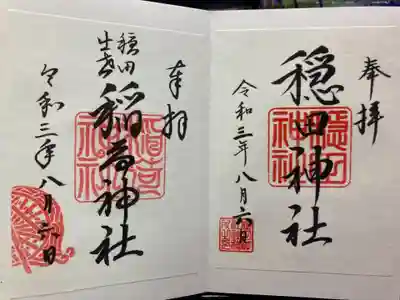 奉拝
穏田神社
穏田神社
令和三年八月六日
奉拝
穏田
稲荷神社
令和三年八月六日